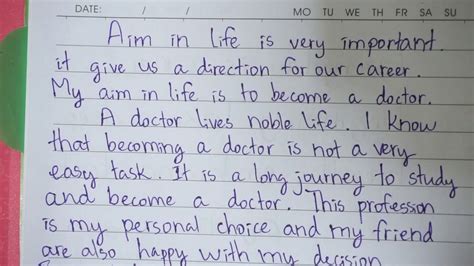 DATE: / / MO TU WE TH FR SA SU
Aim in life is very important.
it give us a direction for our career.
My aim in life is to become a doctor.
A doctor lives noble life. I know
that becoming a doctor is not a very
easy task. It is a long journey to study
and become a doctor. This profession
is my personal choice and my friend
are also happy with my decision